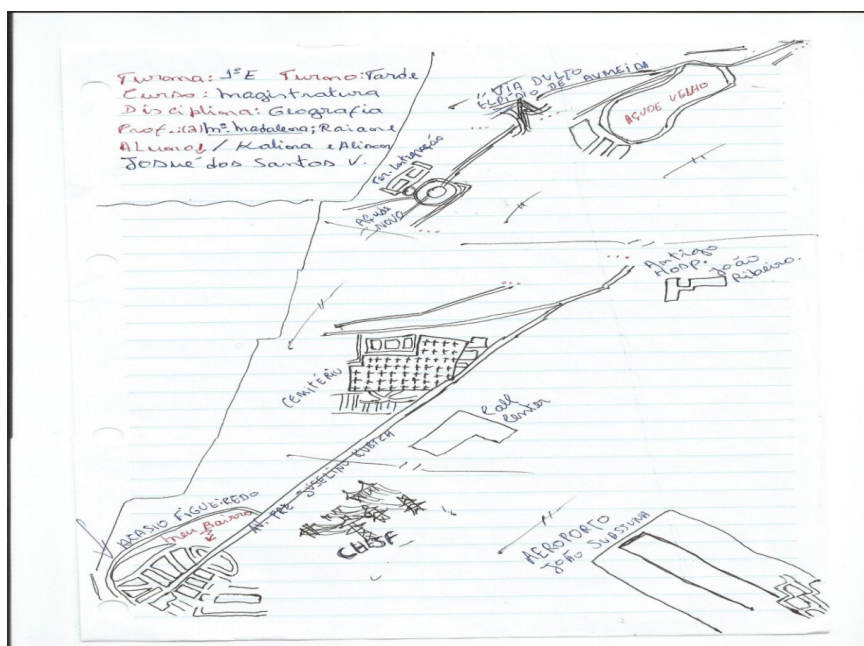 Turma: 1ºE Turno: Tarde
Curso: magistratura
Disciplina: Geografia
Prof.:(a) Mª. Madalena; Raiane
Josué dos Santos V.
VIA DULTO
ELPÍDIO DE AUMEIDA
AÇUDE VELHO
Ter. Integração
Açude
NOVO
Antigo
HOSP. João
Ribeiro.
CEMITÉRIO
Call
Center
AV. PRE JUSELINO KUBTCH
ACASIO FIGUEIREDO
meu Bairro
CHESF
AEROPORTO
JOÃO SUASSUNA